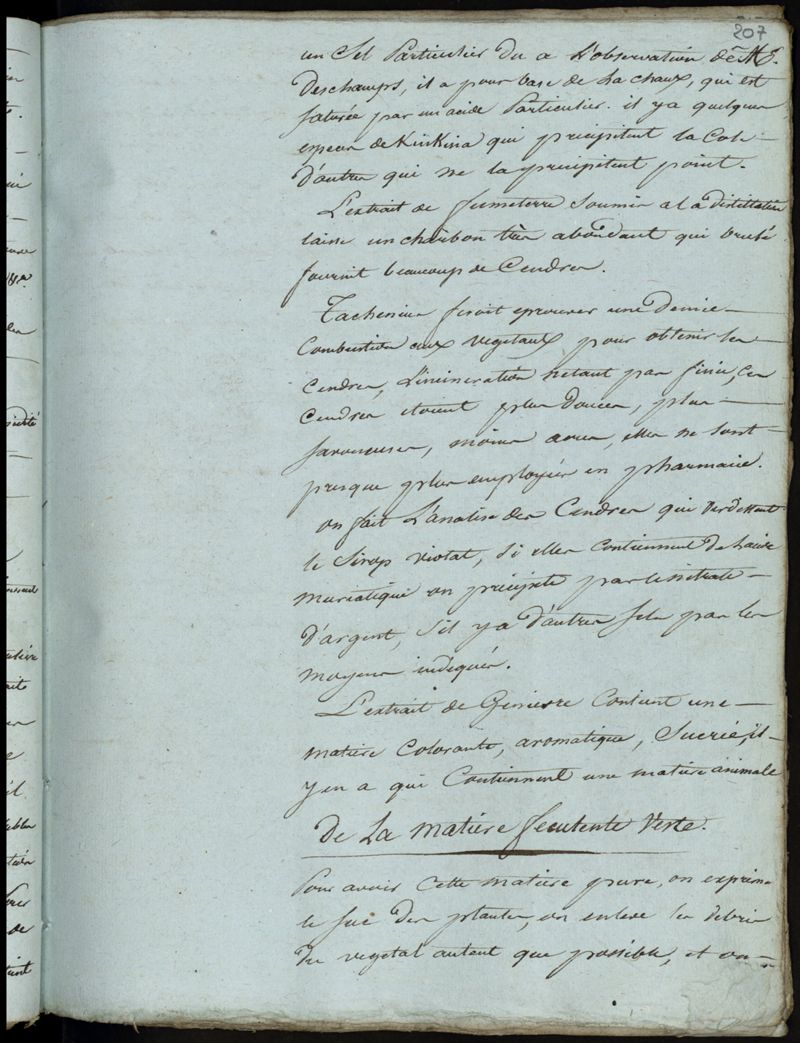 207
un Sel Particulier du a L'observation de Mr.
Deschamps, il a pour base de La chaux, qui est
saturée par un acide Particulier. il ya quelques
especes de Kinkina qui precipitent la Cole
D'autres qui ne la precipitent point.
L'extrait de fumeterre soumis a la distillation
laisse un charbon très abondant qui brulé
fournit beaucoup de Cendres.
Tachenius fesoit eprouver une demie
Combustion aux vegetaux pour obtenir les
Cendres, L'incineration netant pas finie, Ces
Cendres etoient plus douces, plus
savoneuses, moins acres, elles ne sont
presque plus employées en pharmacie.
on fait L'analise des Cendres qui verdissent
le Sirop violat, Si elles contiennent de Lacide
muriatique on precipite par le nitrate
D'argent, S'il ya D'autres sels par les
moyens indiqués.
L'extrait de Genievre Contient une
matiere Colorante, aromatique, Sucrée, il
y en a qui Contiennent une matiere animale
De La matiere feculente Verte.
Pour avoir Cette matiere pure, on exprime
le suc des plantes, on enleve les debris
du vegetal autant que possible, et on